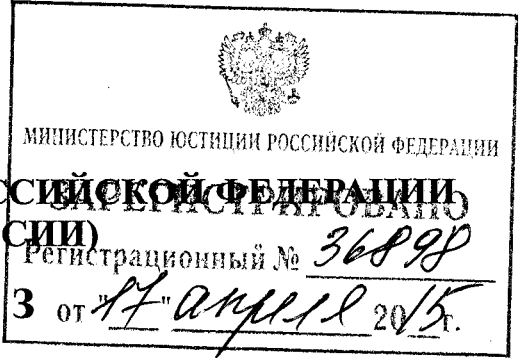 МИНИСТЕРСТВО ЮСТИЦИИ РОССИЙСКОЙ ФЕДЕРАЦИИ
ССИЙСКОЙ ФЕДЕРАЦИИ
ЗАРЕГИСТРИРОВАНО
СИИ)
Регистрационный № 36898
З от "17" апреля 2015г.